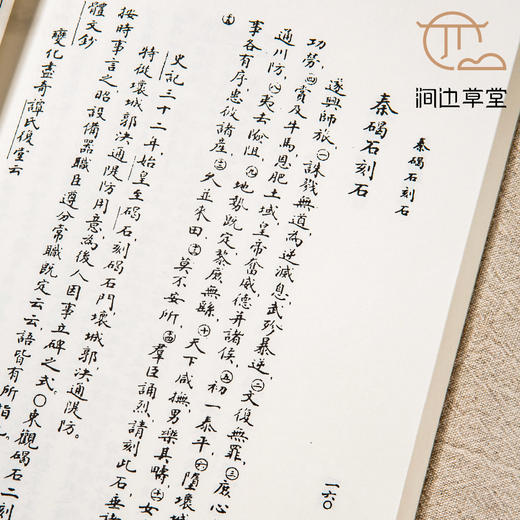 涧边草堂
秦碣石刻石
一六〇
秦碣石刻石
遂興師旅㊀誅戮無道為逆滅息武殄暴逆㊁文復無罪㊂庶心
功勞㊃賞及牛馬恩肥土域皇帝奮威德并諸侯㊄初一泰平㊅墮壞城
通川防㊇夷去險阻㊈地勢既定黎庶無繇㊉天下咸撫男樂其疇女
事各有序惠被諸產久並來田莫不安所羣臣誦烈請刻此石垂
史記三十二年始皇至碣石刻碣石門壞城郭決通隄防
特從壞城郭決通隄防用意為後人因事立碑之式〇東觀碣石二刻
按時事言之昭設備器職臣遵分常職既定云云語皆有所指
體文鈔
變化盡奇譚氏復堂云